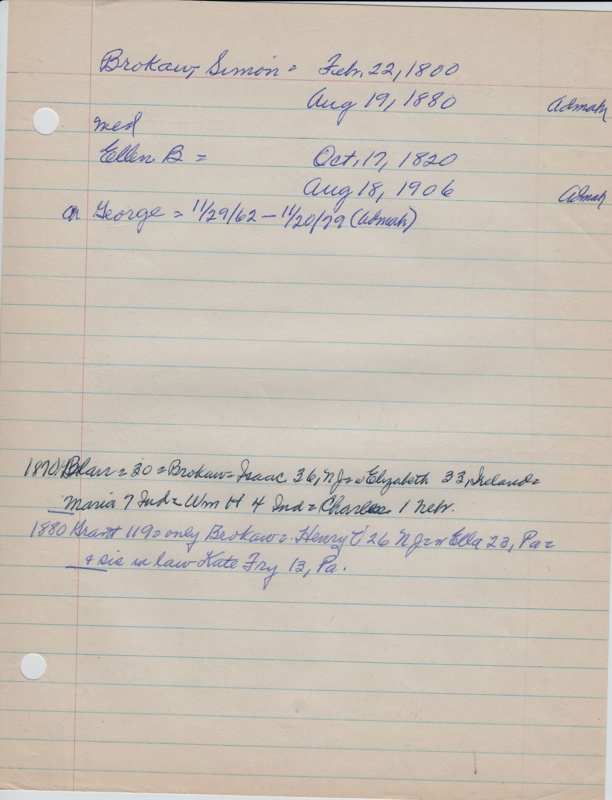 Brokaw, Simon = Feb. 22, 1800
Aug 19, 1880 Admah
med
Ellen B = Oct. 17, 1820
Aug 18, 1906 Admah
ch George = 11/29/62 - 11/20/79 (Admah)
1870 Blair = 30 = Brokaw = Isaac 36, NJ = w Elizabeth 33, Ireland =
Maria 7 Ind = Wm H 4 Ind = Charles 1 Nebr.
1880 Grant 119 = only Brokaw = Henry C 26 NJ = w Ella 23, Pa =
+ sis in law Kate Fry 13, Pa.